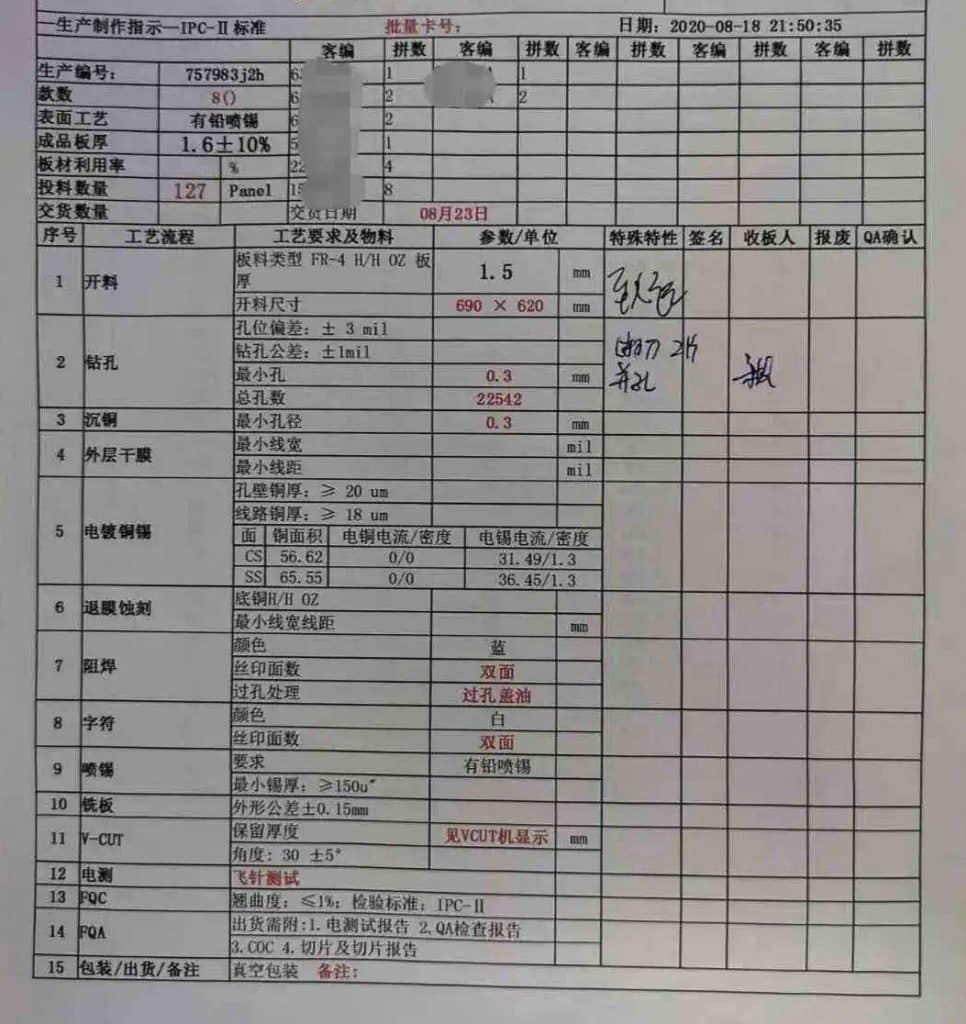 一生产制作指示—IPC-Ⅱ标准 批量卡号： 日期：2020-08-18 21:50:35
客编 拼数 客编 拼数 客编 拼数 客编 拼数 客编 拼数
生产编号： 757983j2h 1 1
款数 8() 2 2
表面工艺 有铅喷锡 2
成品板厚 1.6±10% 1
板材利用率 % 4
投料数量 127 Panel 8
交货数量 交货日期 08月23日
序号 工艺流程 工艺要求及物料 参数/单位 特殊特性 签名 收板人 报废 QA确认
1 开料 板料类型 FR-4 H/H OZ 板厚 1.5 mm
开料尺寸 690 × 620 mm
2 钻孔 孔位偏差：± 3 mil
钻孔公差：±1mil
最小孔 0.3 mm
总孔数 22542
3 沉铜 最小孔径 0.3 mm
4 外层干膜 最小线宽 mil
最小线距 mil
5 电镀铜锡 孔壁铜厚：≥ 20 um
线路铜厚：≥ 18 um
面 铜面积 电铜电流/密度 电锡电流/密度
CS 56.62 0/0 31.49/1.3
SS 65.55 0/0 36.45/1.3
6 退膜蚀刻 底铜H/H OZ
最小线宽线距 mm
7 阻焊 颜色 蓝
丝印面数 双面
过孔处理 过孔盖油
8 字符 颜色 白
丝印面数 双面
9 喷锡 要求 有铅喷锡
最小锡厚：≥150u"
10 铣板 外形公差±0.15mm
11 V-CUT 保留厚度 见VCUT机显示 mm
角度：30 ±5°
12 电测 飞针测试
13 FQC 翘曲度：≤1%；检验标准：IPC-Ⅱ
14 FQA 出货需附:1.电测试报告 2.QA检查报告
3.COC 4.切片及切片报告
15 包装/出货/备注 真空包装 备注: